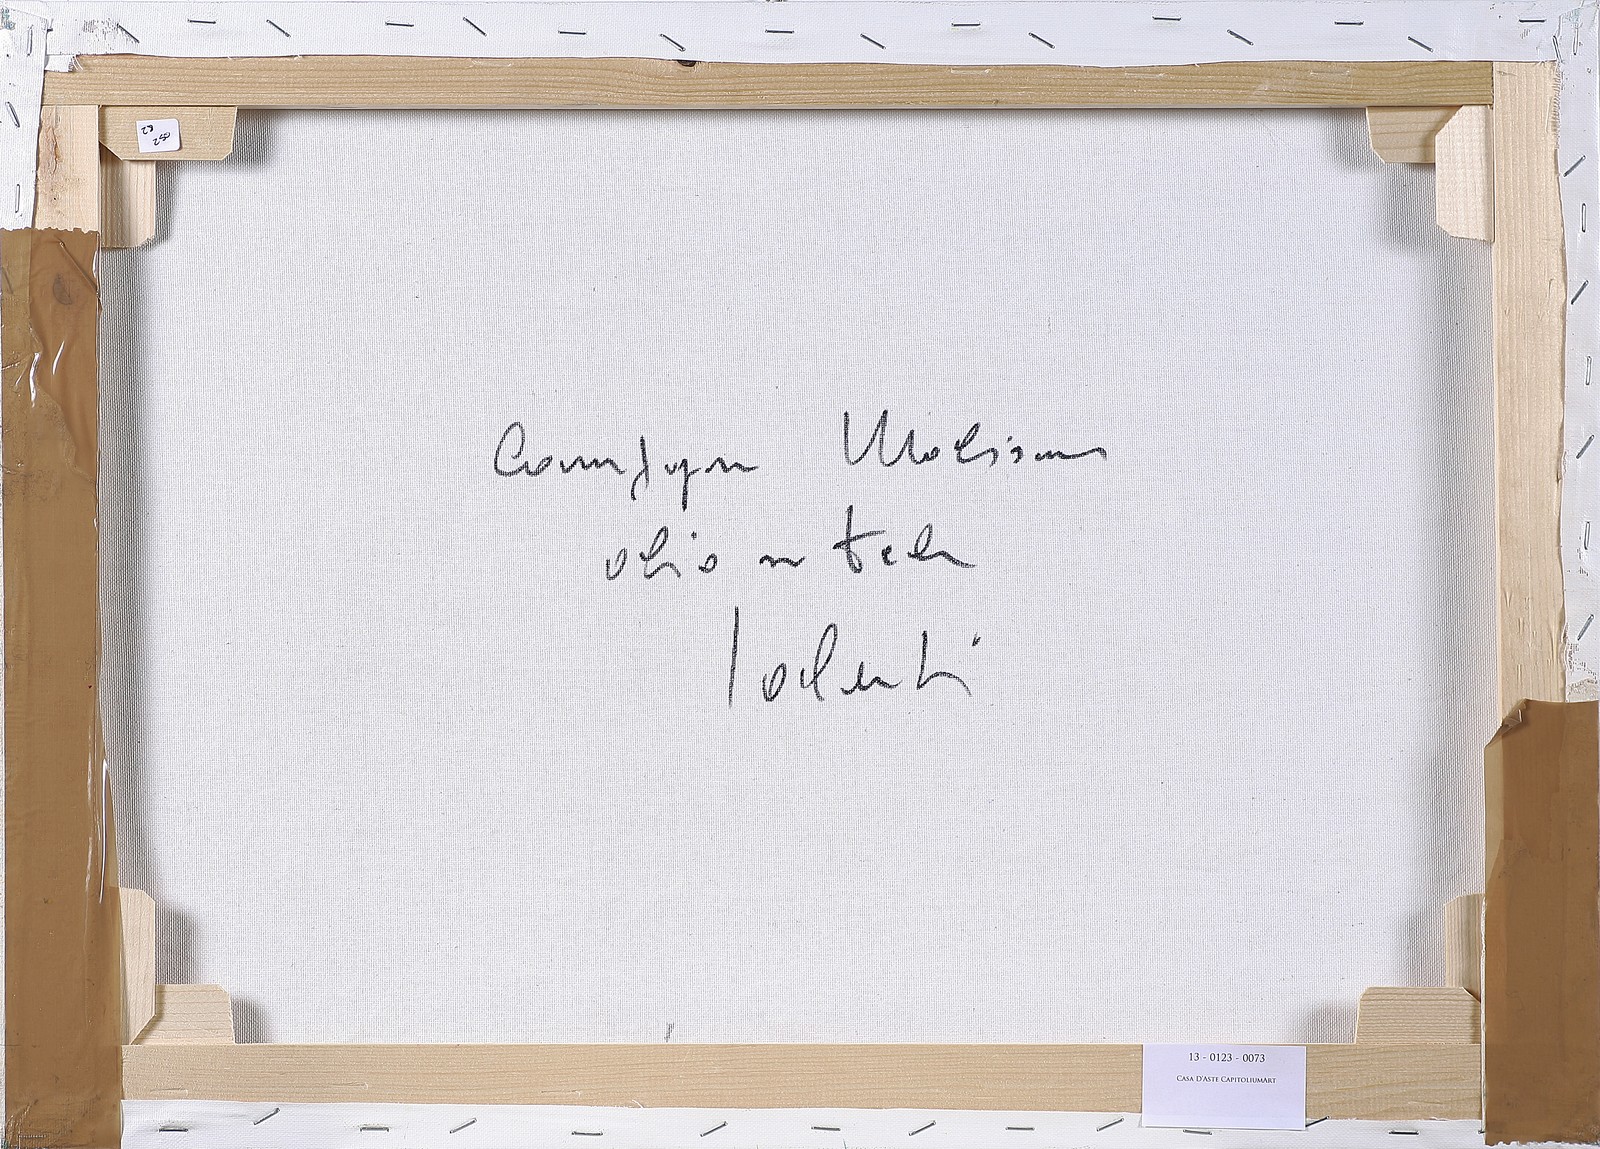 Campagna Molisana
olio su tela
13 - 0123 - 0073
CASA D'ASTE CAPITOLIUMART